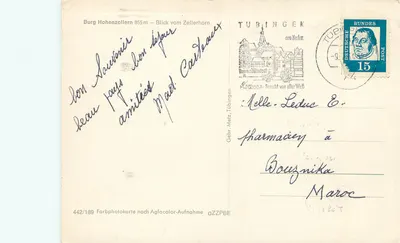 Burg Hohenzollern 855 m – Blick vom Zellerhorn
bon Souvenir
beau pays bon séjour
amitiés
Mad. 
Gebr. Metz, Tübingen
442/188 Farbenfotokarte nach Agfacolor-Aufnahme
TÜBINGEN
TÜB
DEUTSCHE BUNDESPOST
15
Melle. Leduc E.
pharmacien à
Bouznika
Maroc